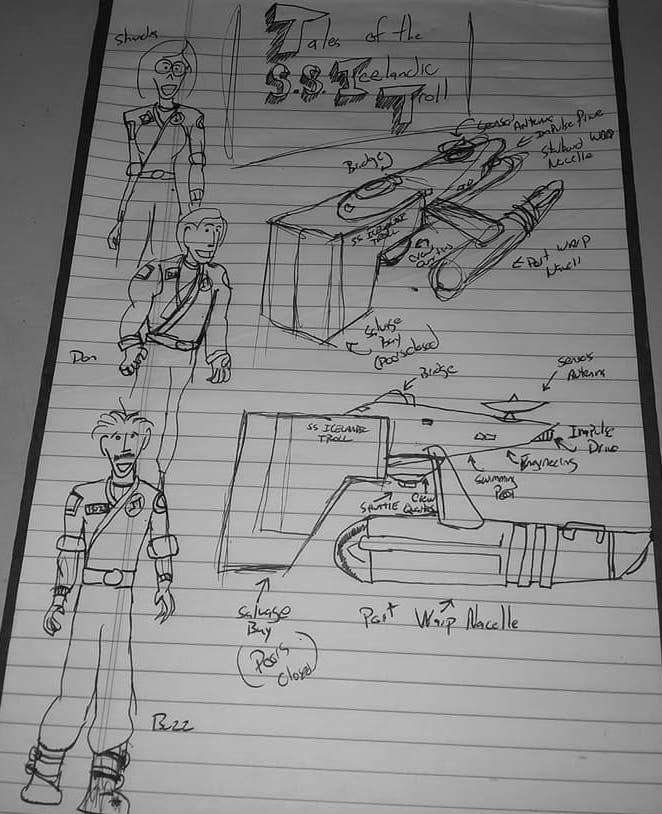 Tales of the
S.S. Icelandic
Troll
Bridge
Antenna
Impulse Drive
Warp
Nacelle
SS ICELANDIC
TROLL
Port Warp
Salvage
Bay
(Doors closed)
Don
Bridge
Antenna
SS ICELANDIC
TROLL
Impulse
Drive
Engineering
Swimming
Pool
Shuttle
Crew
Quarters
Salvage
Bay
(Doors
Closed)
Port Warp Nacelle
Buzz